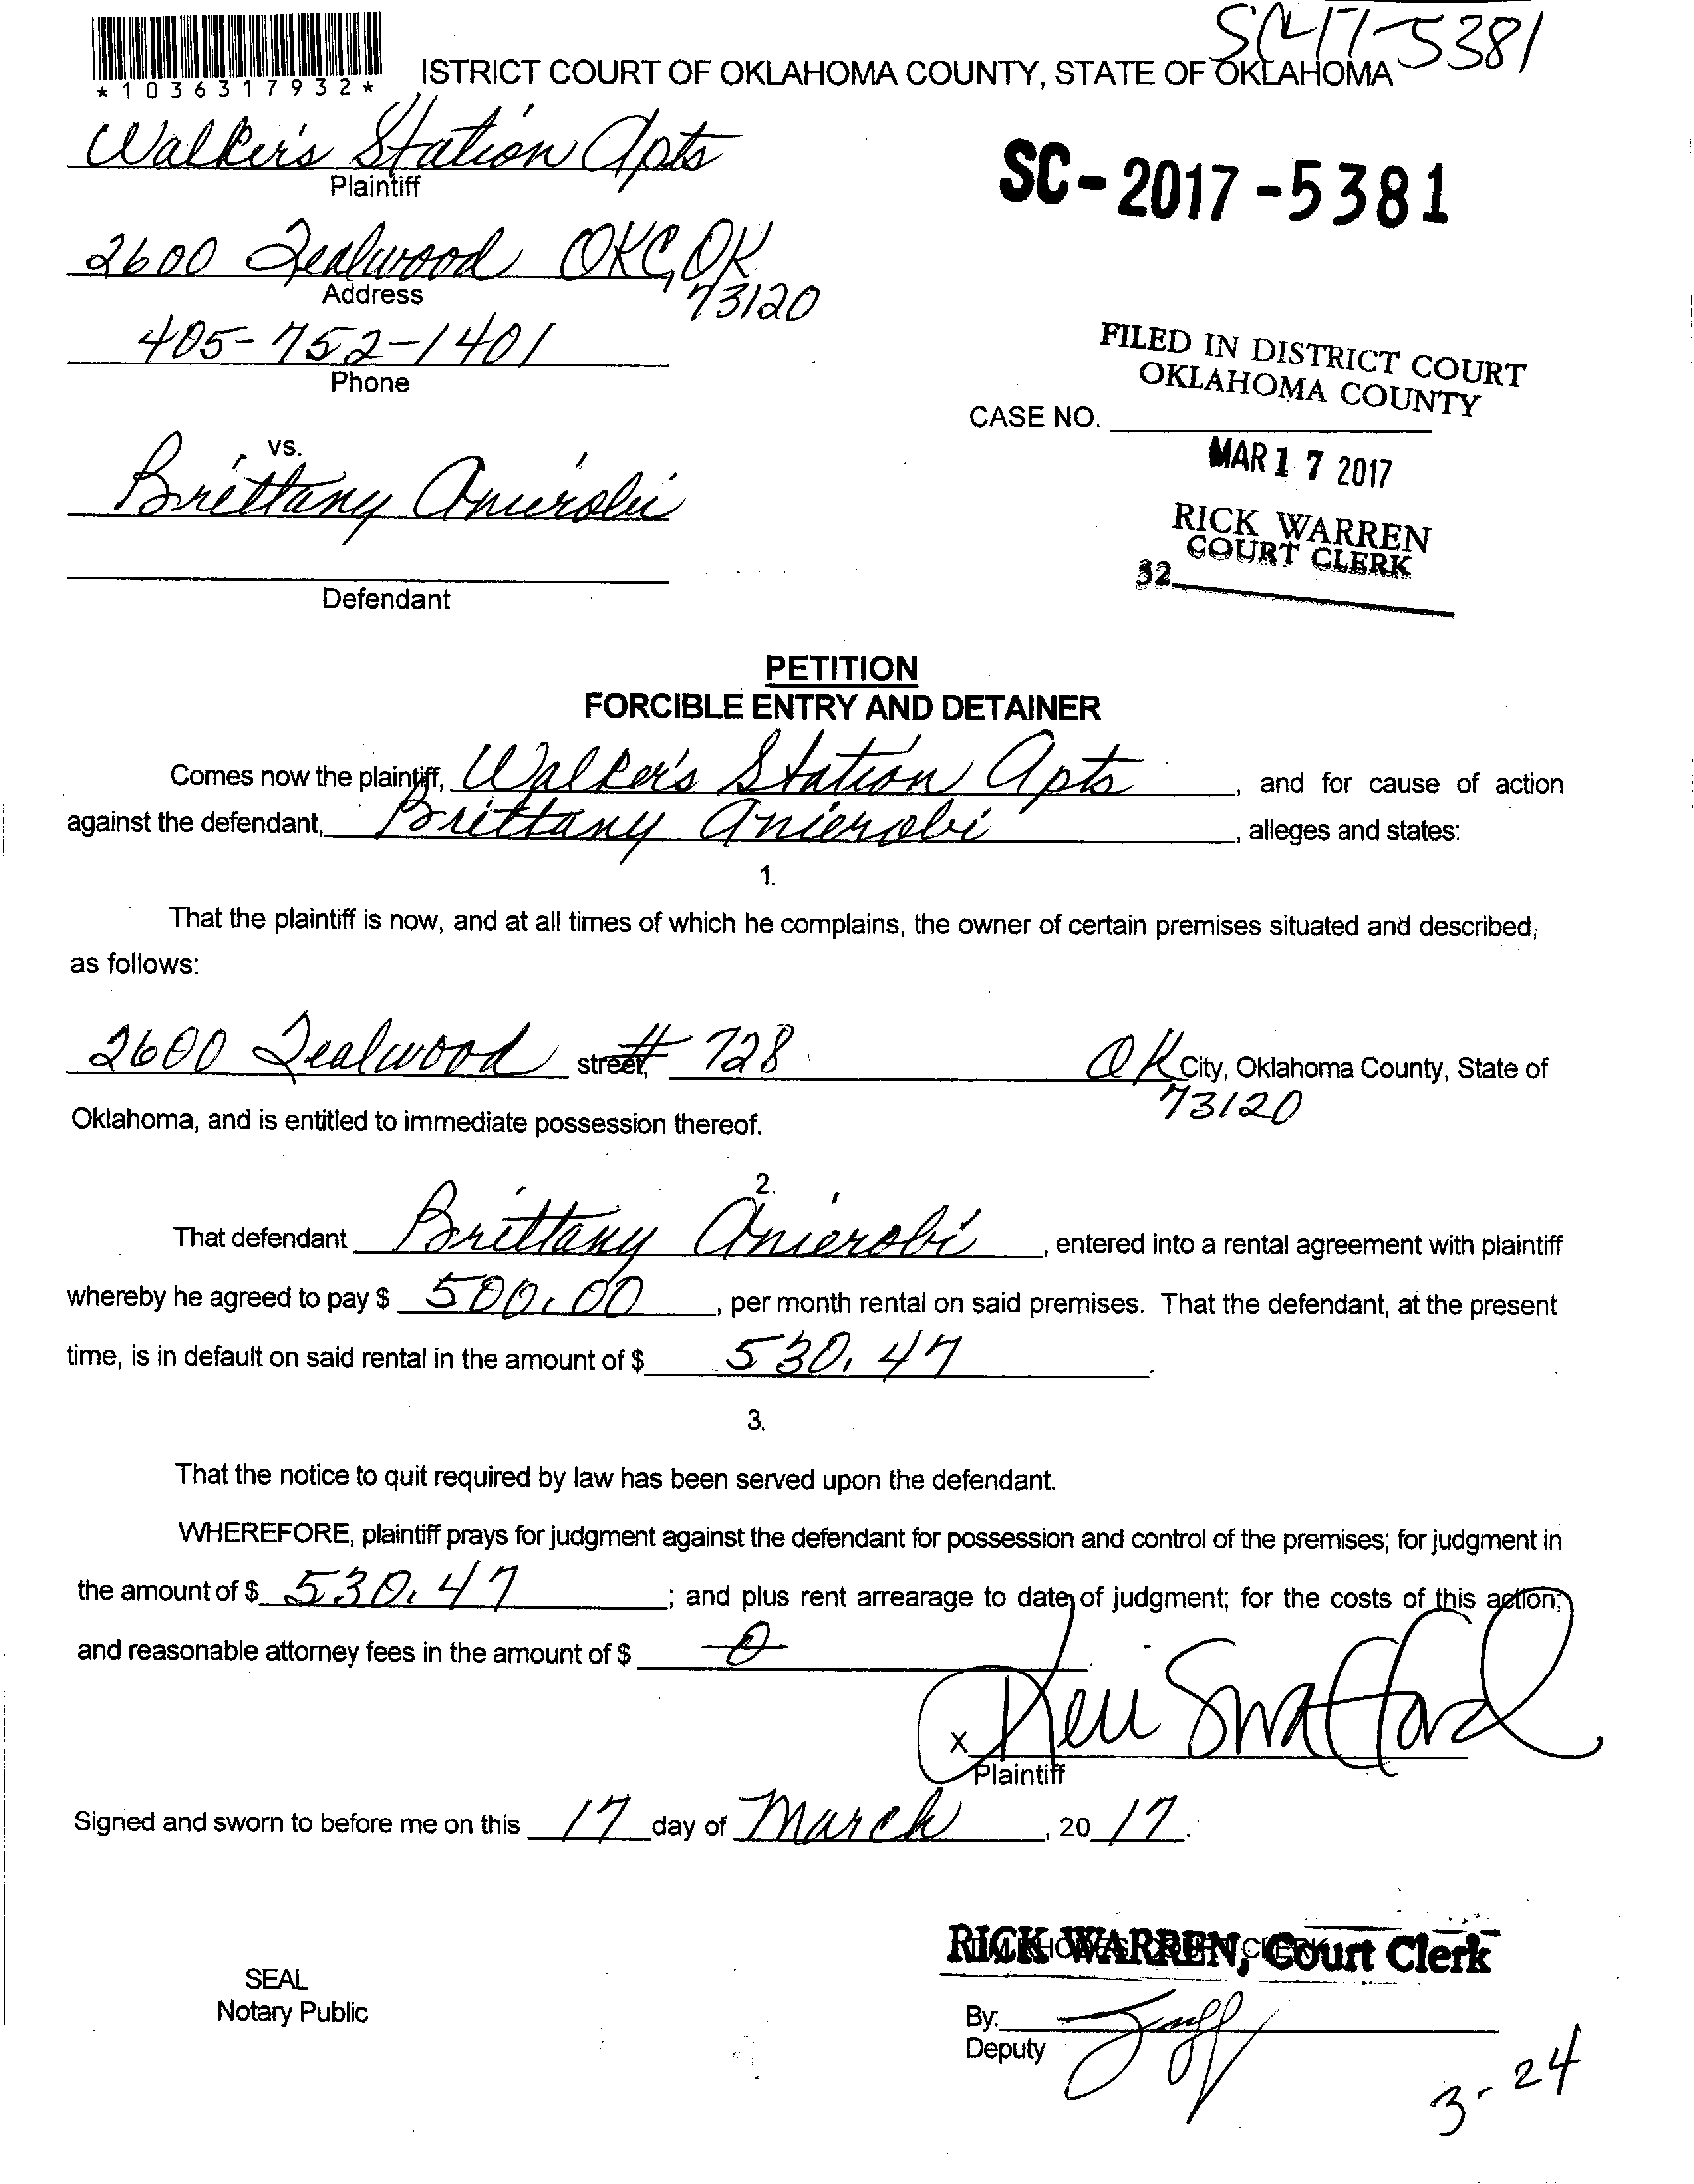 SC-17-5381
*1036317932*
ISTRICT COURT OF OKLAHOMA COUNTY, STATE OF OKLAHOMA
Walker's Station Apts
Plaintiff
SC-2017-5381
2600 Tealwood OKC, OK
Address
73120
405-752-1401
Phone
FILED IN DISTRICT COURT
OKLAHOMA COUNTY
CASE NO.
MAR 17 2017
vs.
Brittany Anierobi
RICK WARREN
COURT CLERK
32
Defendant
PETITION
FORCIBLE ENTRY AND DETAINER
Comes now the plaintiff, Walker's Station Apts, and for cause of action
against the defendant, Brittany Anierobi, alleges and states:
1.
That the plaintiff is now, and at all times of which he complains, the owner of certain premises situated and described,
as follows:
2600 Tealwood street, # 728 OK City, Oklahoma County, State of
73120
Oklahoma, and is entitled to immediate possession thereof.
2.
That defendant Brittany Anierobi, entered into a rental agreement with plaintiff
whereby he agreed to pay $ 500.00, per month rental on said premises. That the defendant, at the present
time, is in default on said rental in the amount of $ 530.47.
3.
That the notice to quit required by law has been served upon the defendant.
WHEREFORE, plaintiff prays for judgment against the defendant for possession and control of the premises; for judgment in
the amount of $ 530.47; and plus rent arrearage to date of judgment; for the costs of this action;
and reasonable attorney fees in the amount of $ 0
X Keri Swafford
Plaintiff
Signed and sworn to before me on this 17 day of March, 2017.
RICK WARREN, Court Clerk
SEAL
Notary Public
By:
Deputy
3-24